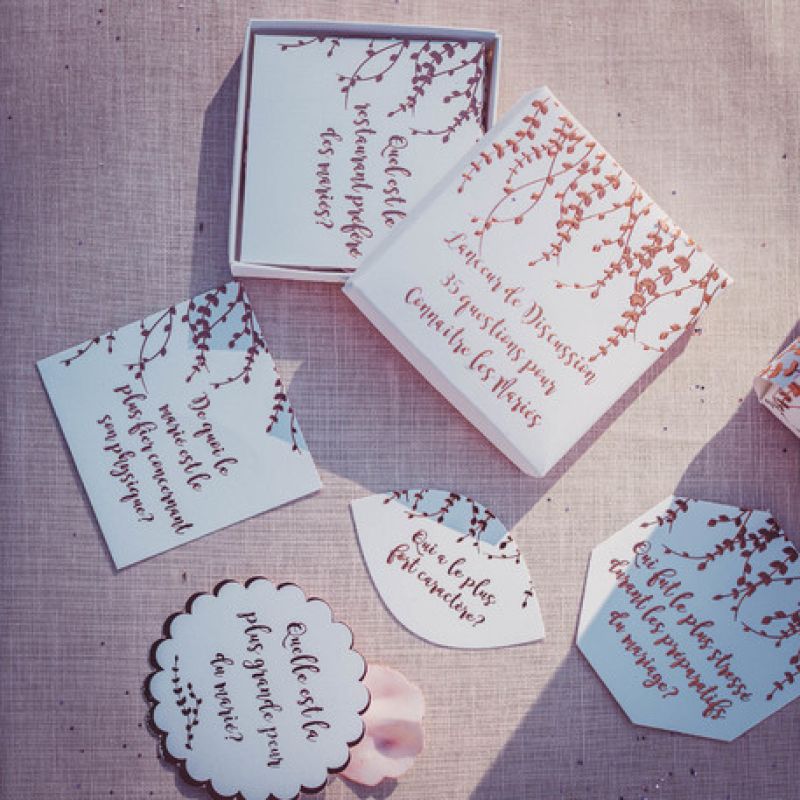 Quel est le
restaurant préféré
des mariés?
Lanceur de Discussion
35 questions pour
Connaître les Mariés
De quoi le
marié est le
plus fier concernant
son physique?
Qui a le plus
fort caractère?
Qui fut le plus stressé
durant les préparatifs
du mariage?
Quelle est la
plus grande peur
du marié?